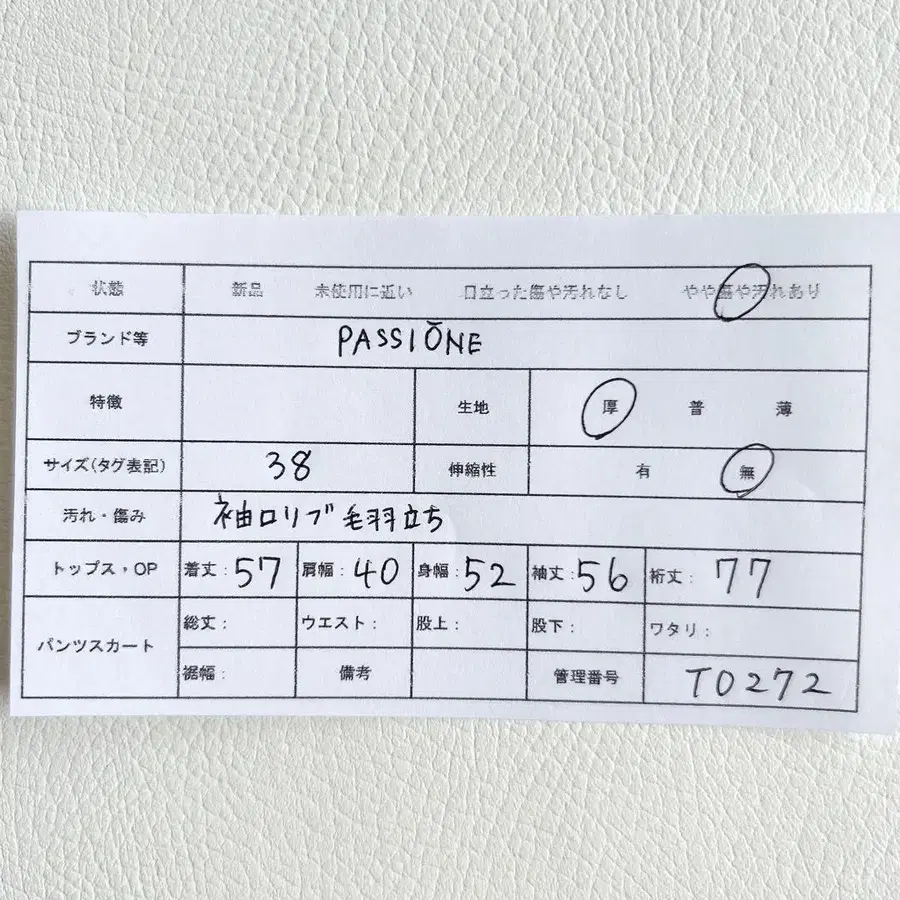 状態 新品 未使用に近い 目立った傷や汚れなし やや傷や汚れあり
ブランド等 PASSIŌNE
特徴 生地 厚 普 薄
サイズ(タグ表記) 38 伸縮性 有 無
汚れ・傷み 袖口リブ毛羽立ち
トップス・OP 着丈:57 肩幅:40 身幅:52 袖丈:56 裄丈:77
パンツスカート 総丈: ウエスト: 股上: 股下: ワタリ:
裾幅: 備考 管理番号 T0272